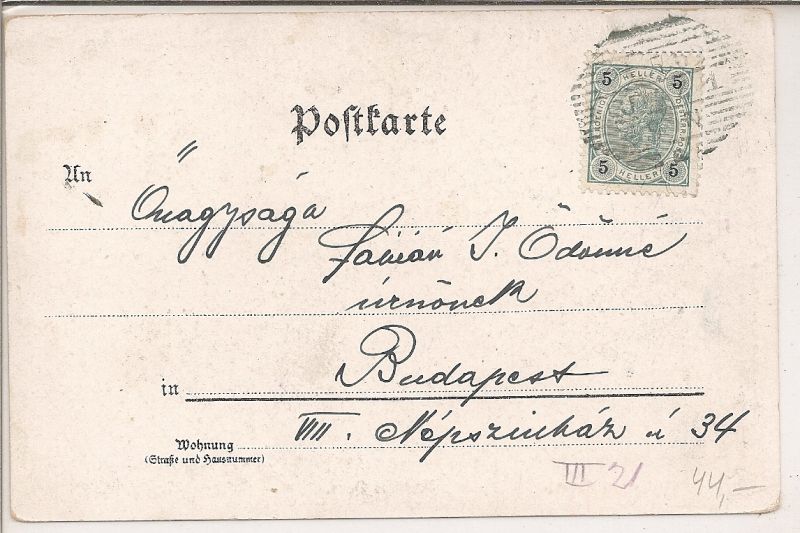 Postkarte
5 HELLER 5
5 HELLER 5
An
Őnagysága
Fábián I. Ödönné
úrnőnek
in Budapest
VIII. Népszinház ú 34
Wohnung
(Straße und Hausnummer)
VII 21
44,-